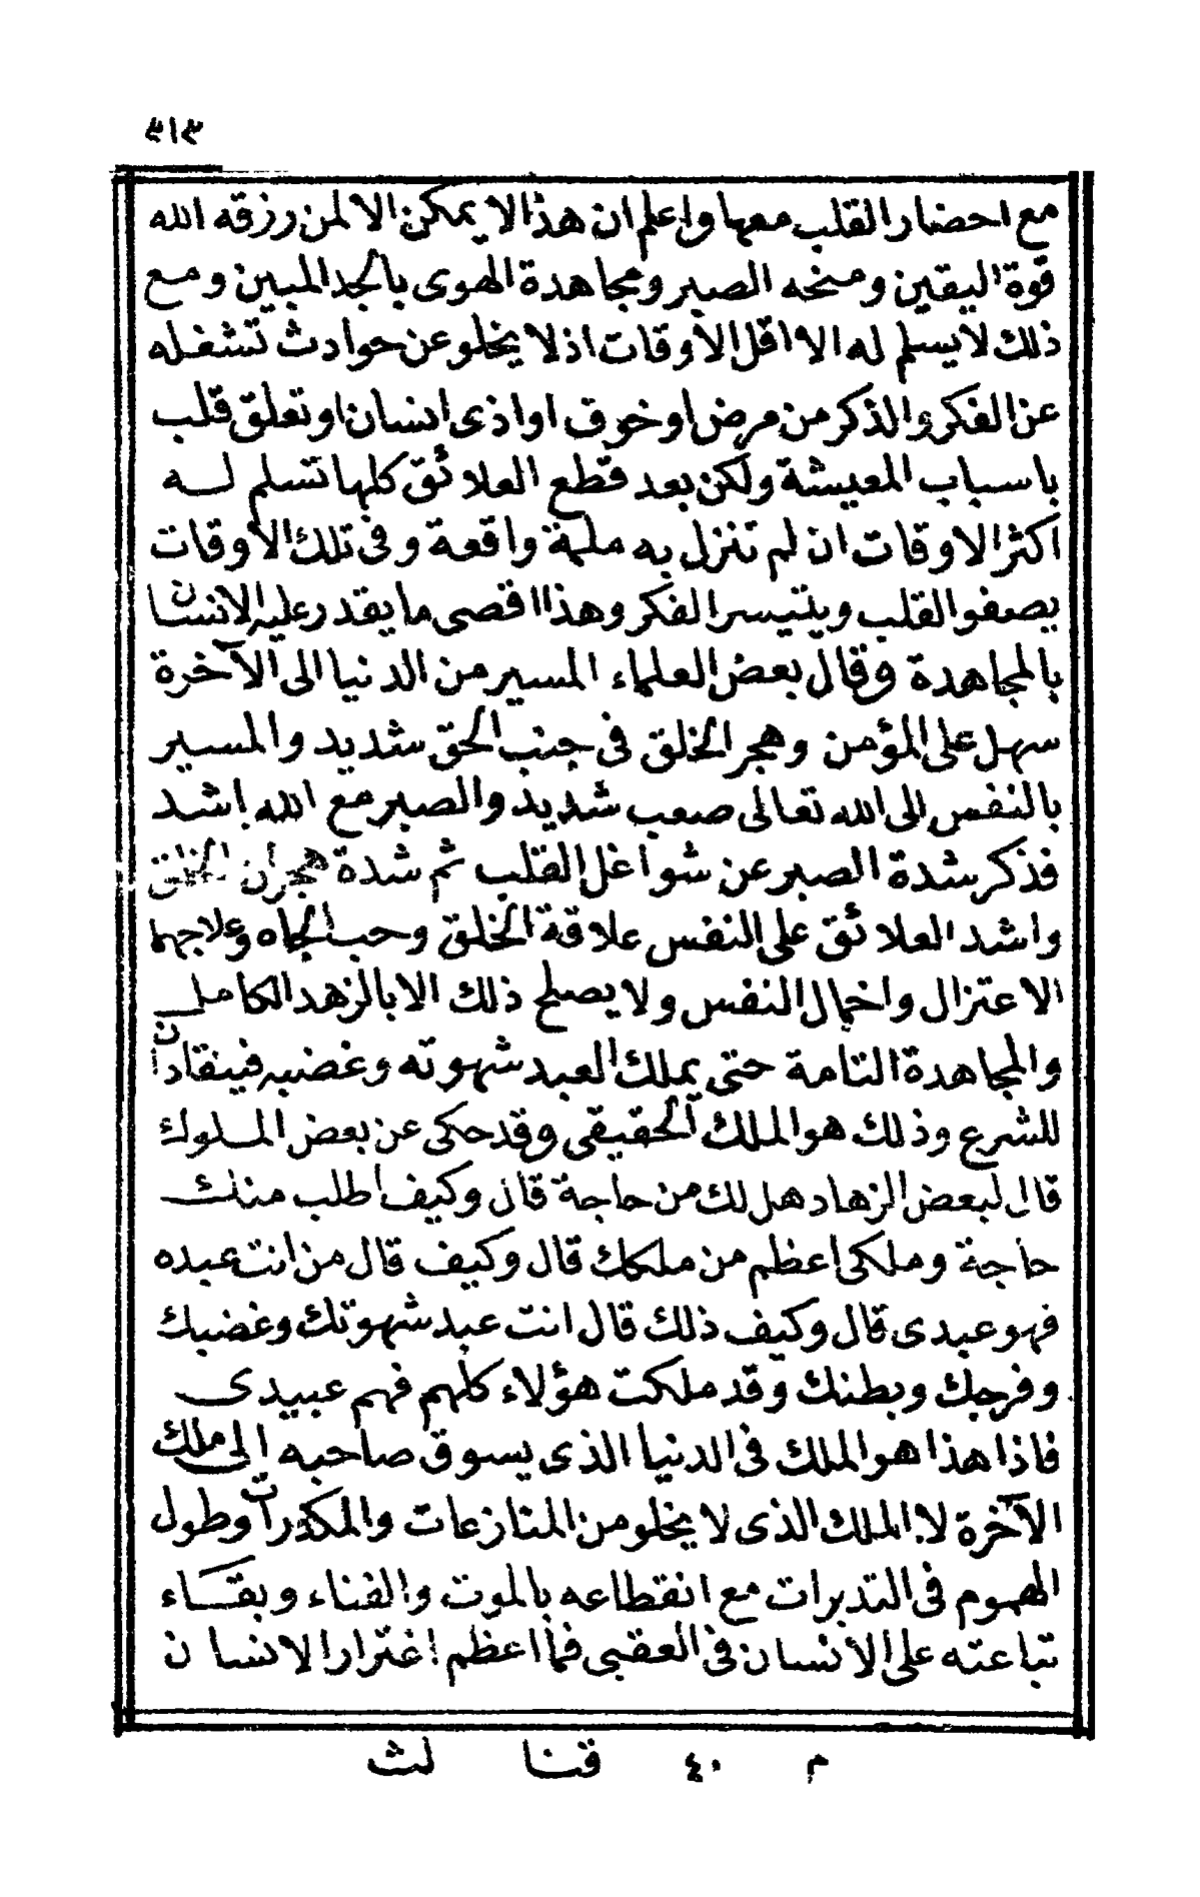 ٣١٣
مع احضار القلب معها واعلم ان هذا لا يمكن الا لمن رزقه الله
قوة اليقين ومنحه الصبر ومجاهدة الهوى بالجد المبين ومع
ذلك لا يسلم له الا اقل الاوقات اذ لا يخلو عن حوادث تشغله
عن الفكر والذكر من مرض او خوف او اذى انسان او تعلق قلب
باسباب المعيشة ولكن بعد قطع العلائق كلها تسلم له
اكثر الاوقات ان لم تنزل به ملمة واقعة وفى تلك الاوقات
يصفو القلب ويتيسر الفكر وهذا اقصى ما يقدر عليه الانسان
بالمجاهدة وقال بعض العلماء المسير من الدنيا الى الآخرة
سهل على المؤمن وهجر الخلق فى جنب الحق شديد والمسير
بالنفس الى الله تعالى صعب شديد والصبر مع الله اشد
فذكر شدة الصبر عن شواغل القلب ثم شدة هجران الخلق
واشد العلائق على النفس علاقة الخلق وحب الجاه وعلاجهما
الاعتزال واخمال النفس ولا يصلح ذلك الا بالزهد الكامل
والمجاهدة التامة حتى يملك العبد شهوته وغضبه فينقادان
للشرع وذلك هو الملك الحقيقى وقد حكى عن بعض الملوك
قال لبعض الزهاد هل لك من حاجة قال وكيف اطلب منك
حاجة وملكى اعظم من ملكك قال وكيف قال من انت عبده
فهو عبدى قال وكيف ذلك قال انت عبد شهوتك وغضبك
وفرجك وبطنك وقد ملكت هؤلاء كلهم فهم عبيدى
فاذا هذا هو الملك فى الدنيا الذى يسوق صاحبه الى ملك
الآخرة لا الملك الذى لا يخلو من المنازعات والمكدرات وطول
الهموم فى التدبرات مع انقطاعه بالموت والفناء وبقاء
تباعته على الانسان فى العقبى فما اعظم اغترار الانسان
م ٤٠ قنا لث